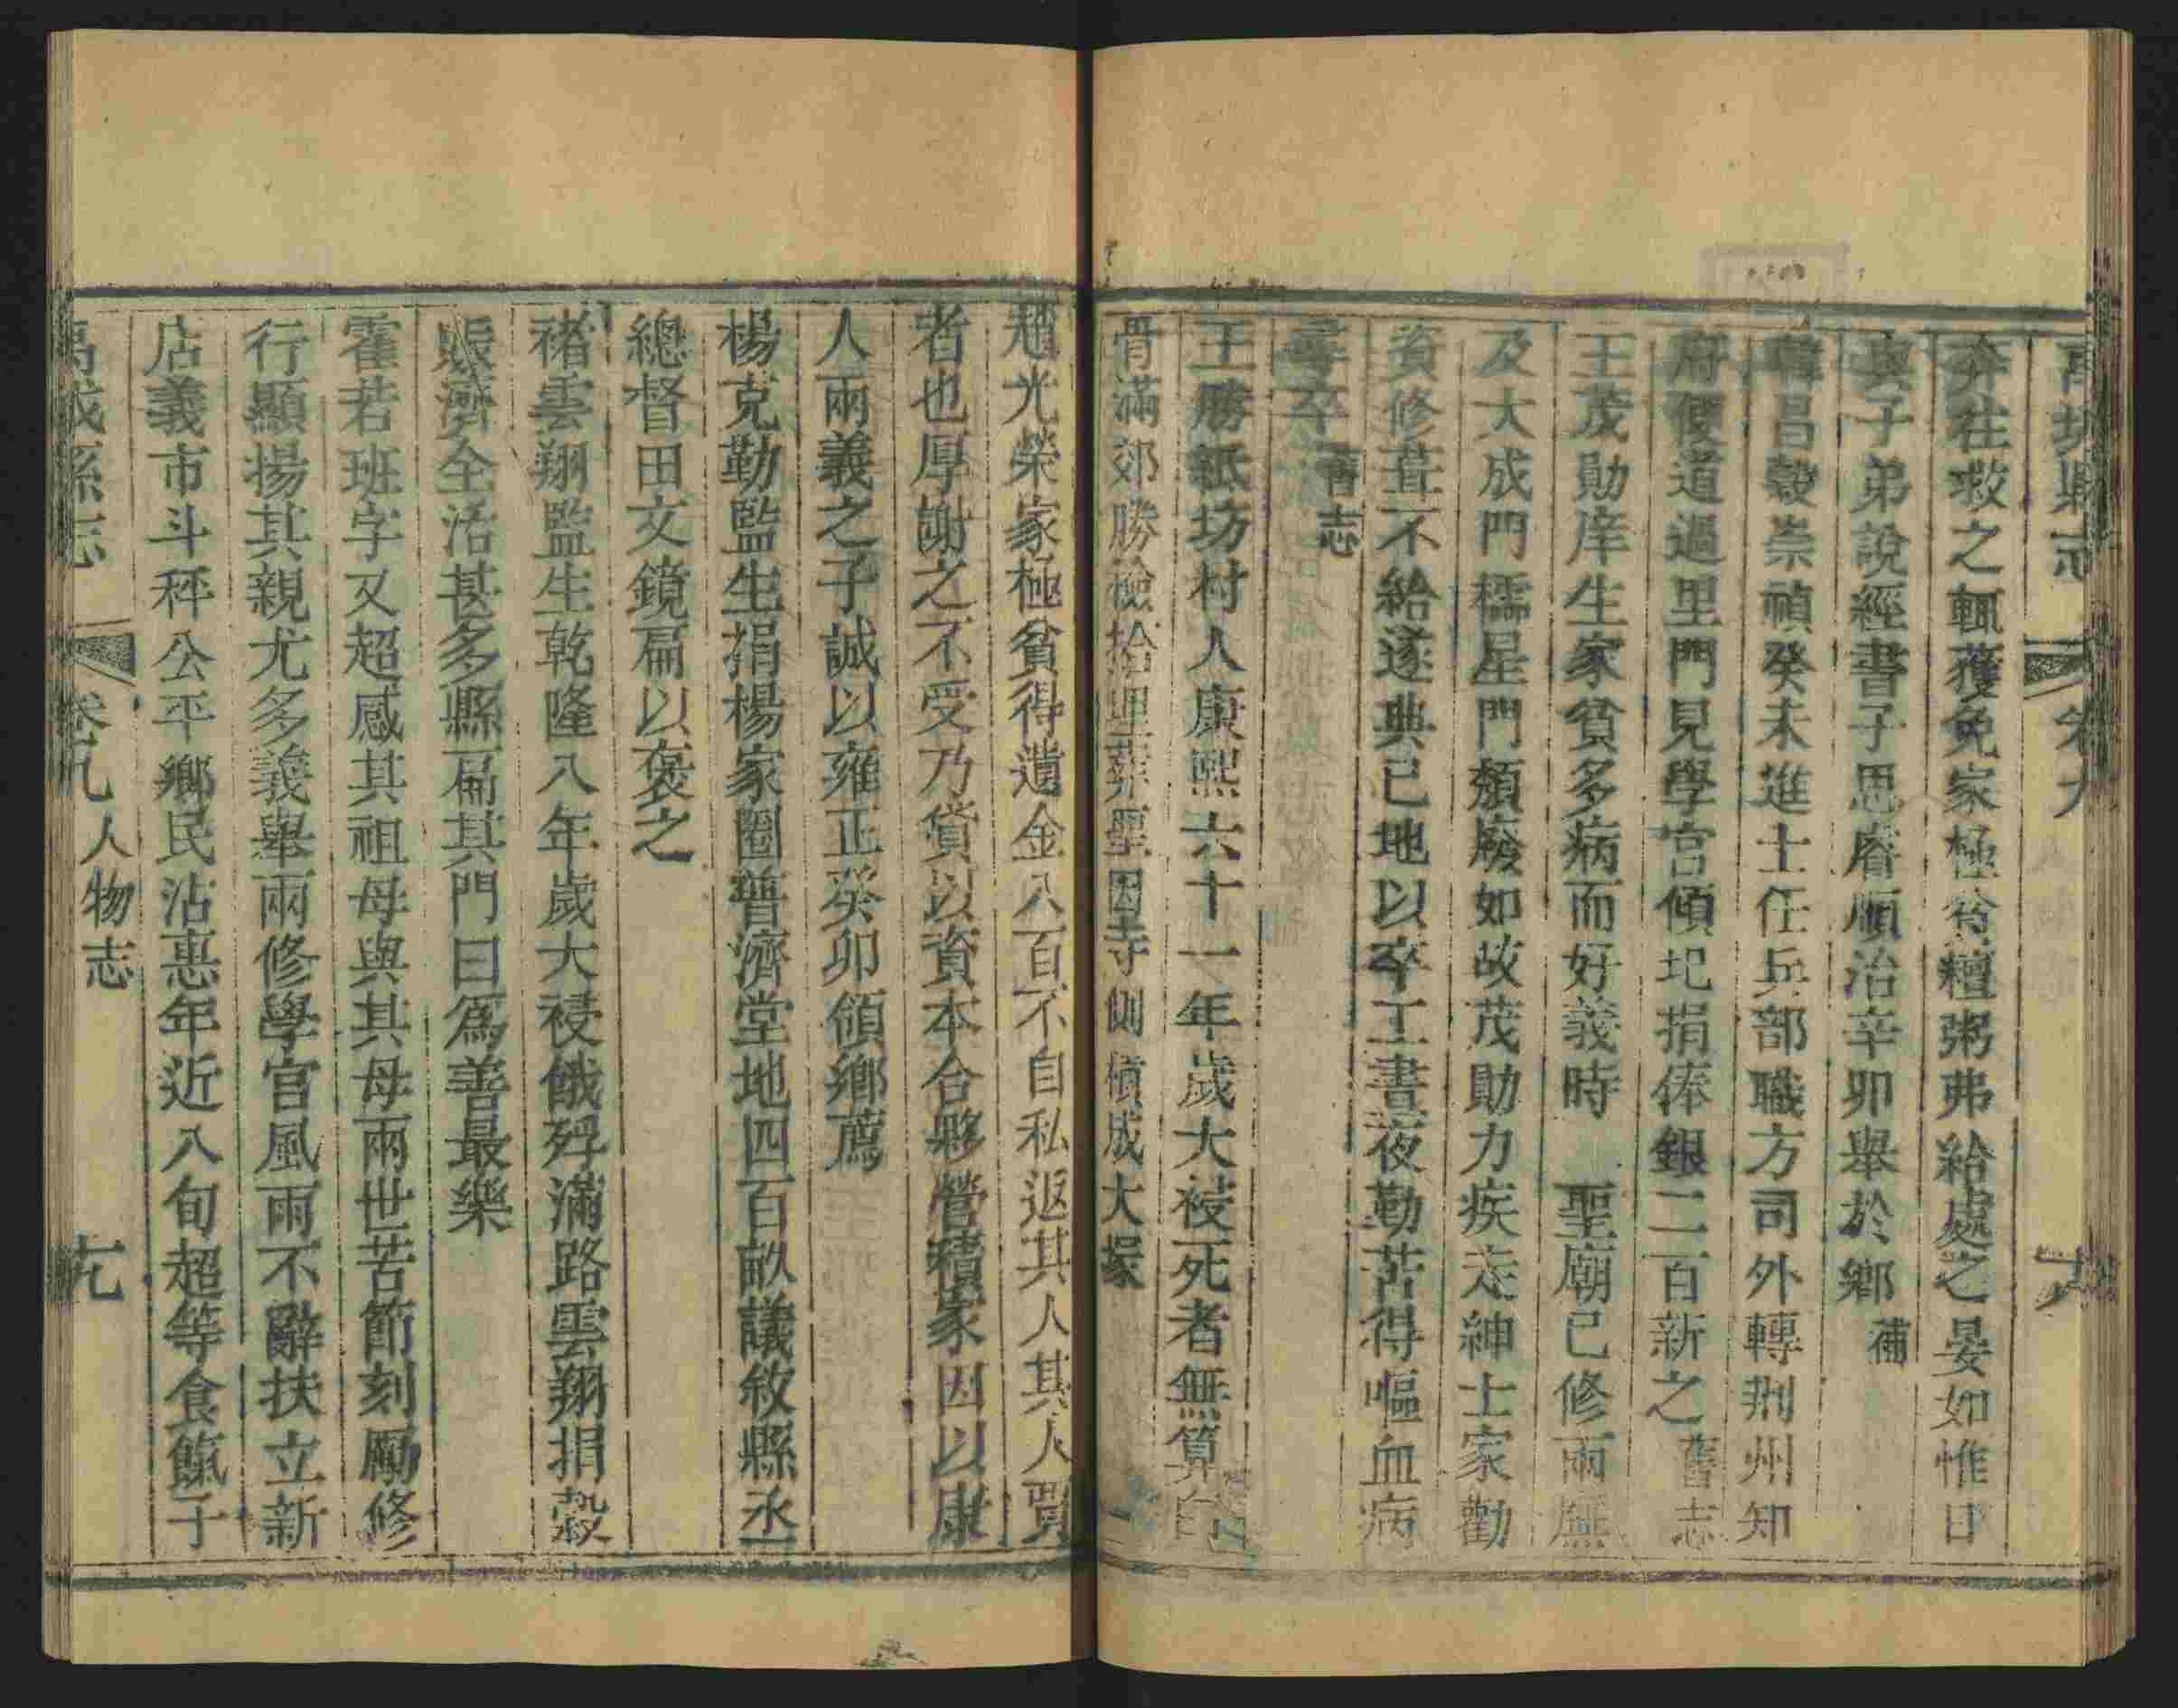 萬城縣志 卷九 十八
奔往救之輒獲免家極貧饘粥弗給處之晏如惟日
與子弟說經書子思睿順治辛卯舉於鄉 補
韓昌穀崇禎癸未進士任兵部職方司外轉荆州知
府便道過里門見學宫傾圮捐俸銀二百新之 舊志
王茂勛庠生家貧多病而好義時 聖廟已修兩廡
及大成門櫺星門頽廢如故茂勛力疾走紳士家勸
資修葺不給遂典己地以卒工晝夜勤苦得嘔血病
尋卒 舊志
王勝紙坊村人康熙六十一年歲大祲死者無算白
骨滿郊勝檢拾埋葬聖因寺側積成大塚
趙光榮家極貧得遺金八百不自私返其人其人賈
者也厚謝之不受乃貸以資本合夥營積家因以康
人兩義之子誠以雍正癸卯領鄉薦
楊克勤監生捐楊家圈普濟堂地四百畝議敘縣丞
總督田文鏡扁以褒之
褚雲翔監生乾隆八年歲大祲餓殍滿路雲翔捐榖
賑濟全活甚多縣扁其門曰爲善最樂
霍若班字又超感其祖母與其母兩世苦節刻厲修
行顯揚其親尤多義舉兩修學官風雨不辭扶立新
店義市斗秤公平鄉民沾惠年近八旬超等食餼子
萬城縣志 卷九 人物志 十九